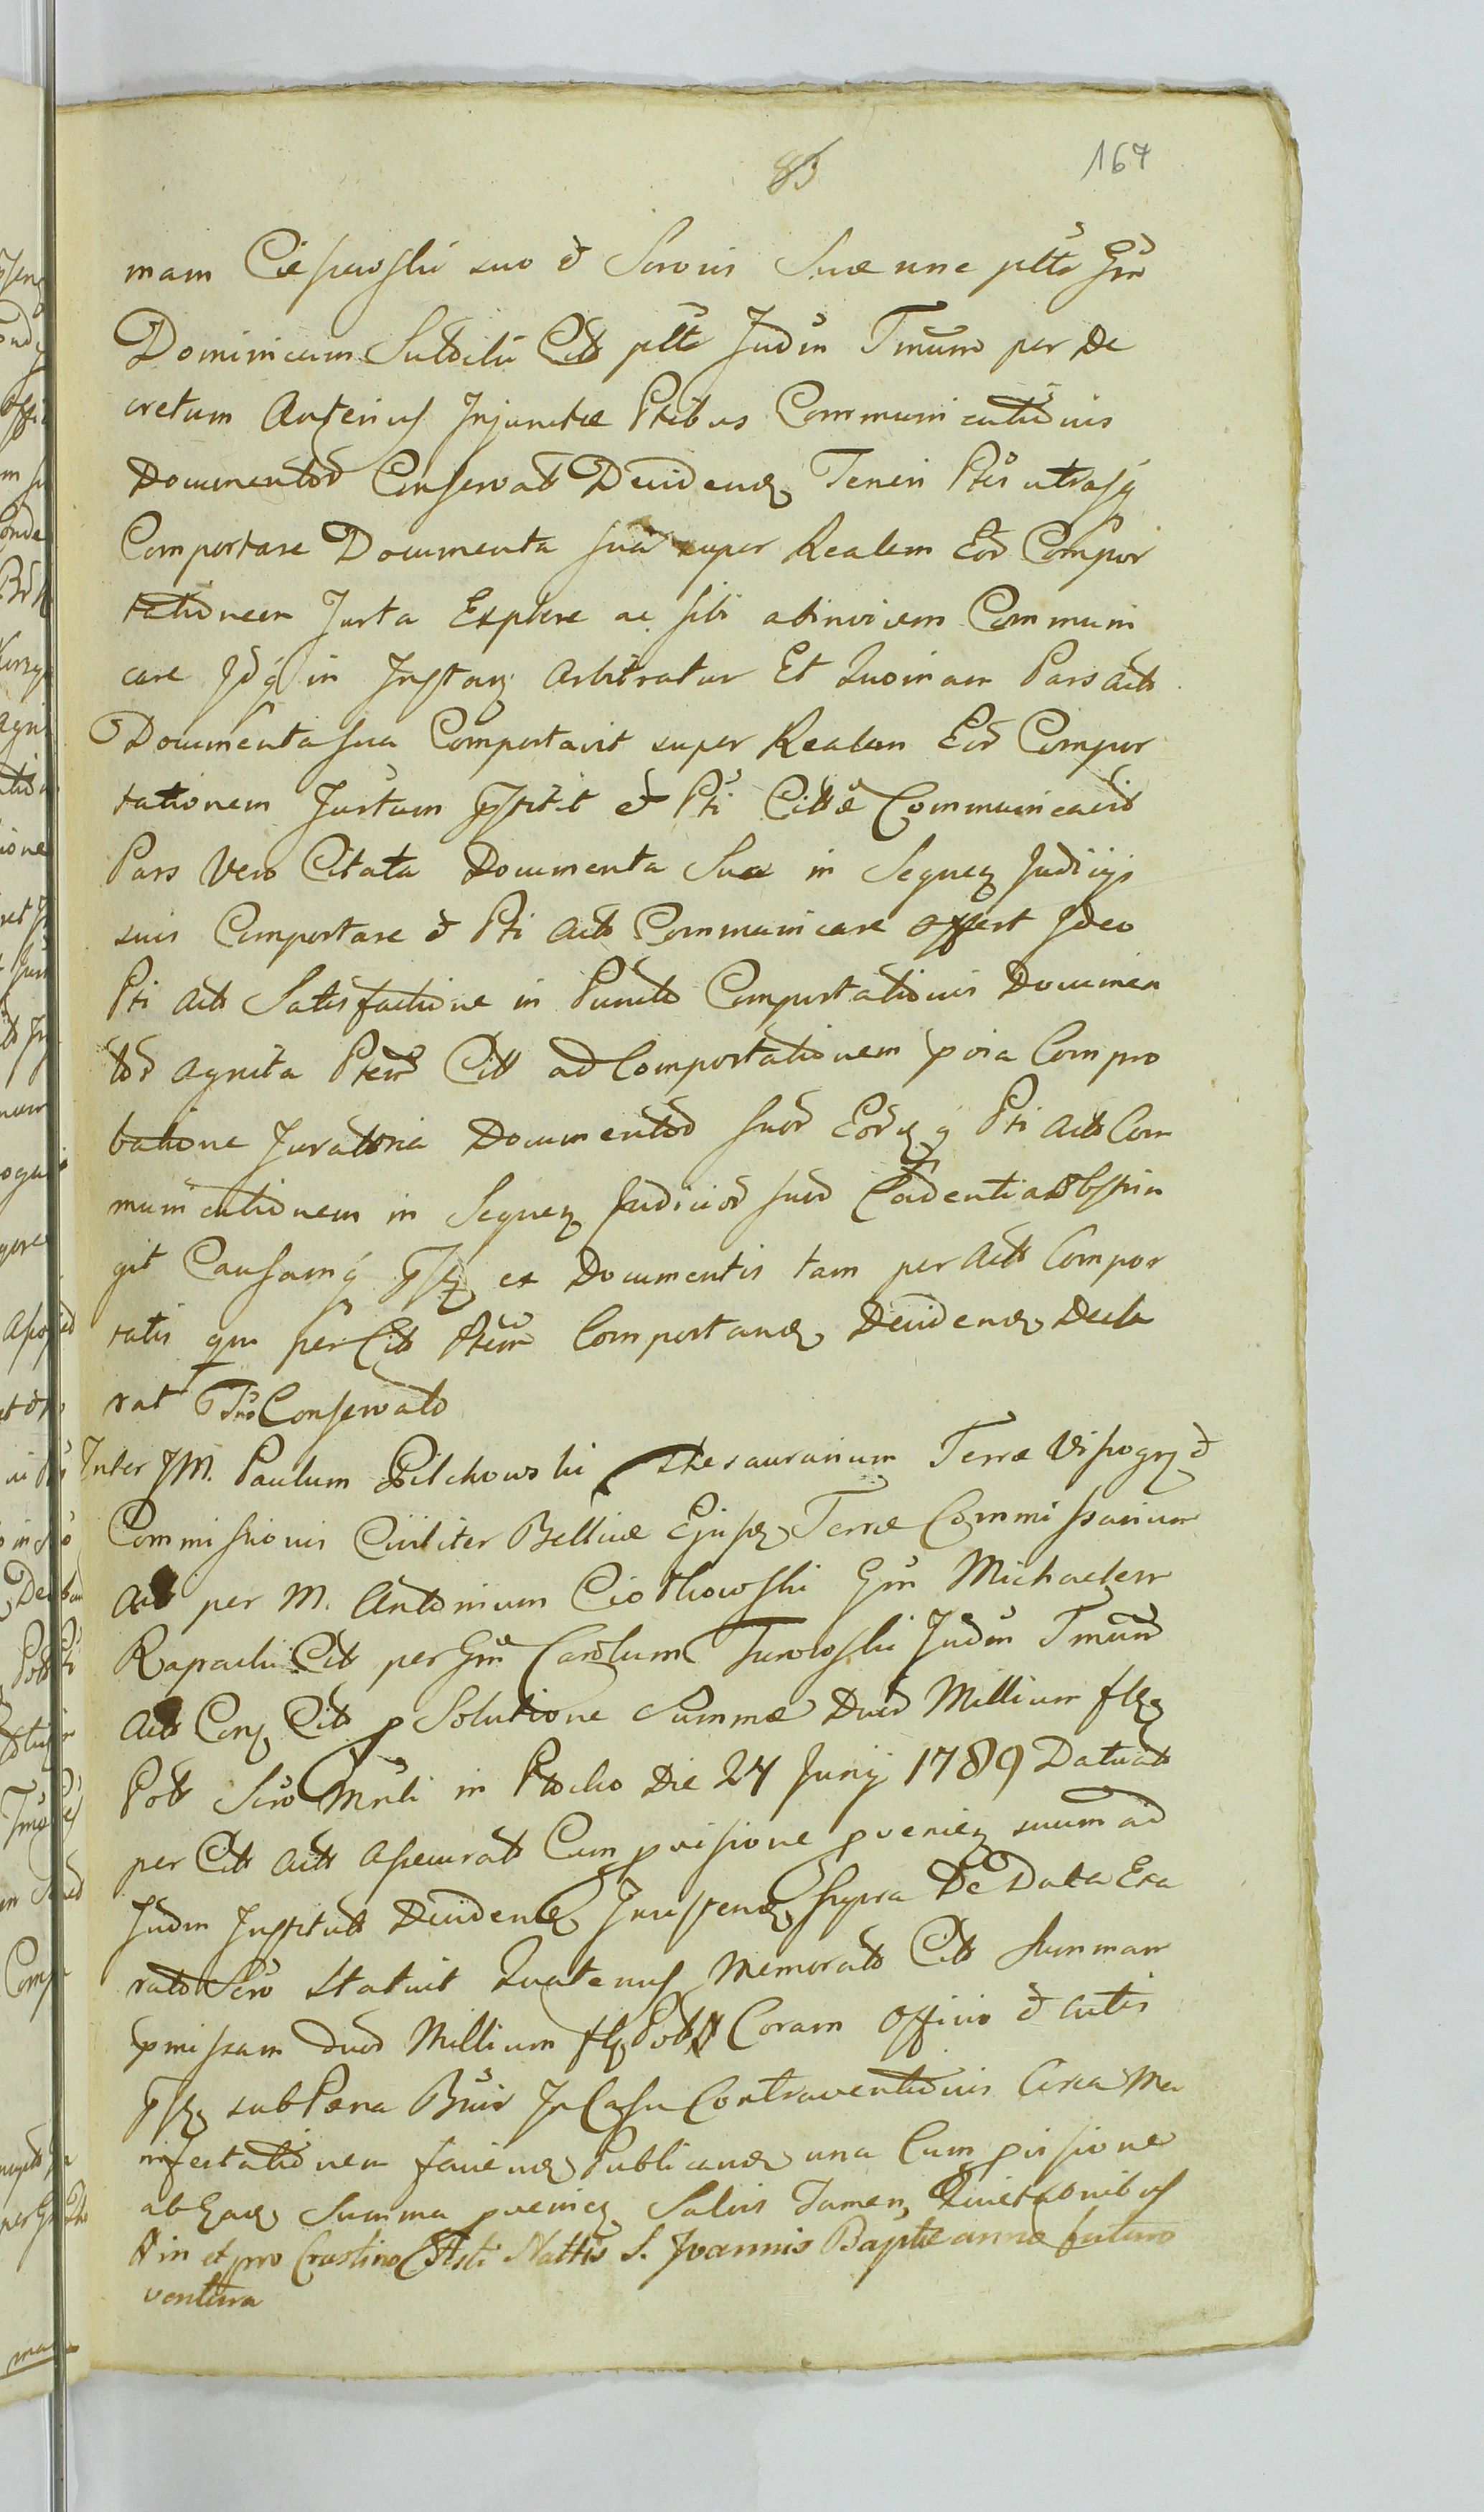 85 167
mam Ciepewski suo et Sororis Suæ nne ptte Gm
Dominicum Suldiki Citt ptte Judm Tmum per De
cretum Anterius Injunctæ Ptibus Communicationis
Documentor Conservatt Decidend Teneri Ptes utrasq
Comportare Documenta sua super Realem Eor Compor
tationem Jurta Explere ac sibi abinvicem Communi
care Idq in Instan Arbitratur Et Quoniam Pars Act
Documenta sua Comportavit super Realem Eor Compor
tationem Juratum pstitit et Pti Cittæ Communicavit
Pars Vero Citata Documenta Sua in Sequen Judicijs
suis Comportare et Pti Act Communicare offert Ideo
Pti Act Satisfactione in Puncto Comportationis Documen
tor agnita Ptem Citt ad Comportationem pvia Compro
batione Juratoria Documentor suor Eorq Pti Act Com
municationem in Sequen Judicior suor Cadentia Obstrin
git Causamq psen ex Documentis tam per Act Compor
tatis qm per Citt Ptem Comportand Decidend Decla
rat Tno Conservato
Inter JM. Paulum Pilchowski Thesaurarium Terræ Vissogr et
Commissionis Civiliter Bellicæ Ejusd Terræ Commissarium
Act per M. Antonium Ciothowski Gm Michaelem
Rapacki Citt per Gm Carolum Turowski Judm Tmum
Act Conj Citt p Solutione Summæ Duor Millium fl
Polt Scro Mnli in Plocko Die 27 Junij 1789 Datuatt
per Citt Act Assecuratt Cum pvisione pvenien suum ad
Judm Institutt Decidend Inussend supra De Data Exa
rato Scro Statuit Quatenus Memoratt Citt Summam
pmissam duor Millium fl Polt # Coram Officio et Actis
psen sub Pæna Bnir In Casu Contraventionis Circa Ma
nifestationem faciend Publicand una Cum pvisione
ab Ead Summa pvenien Salvis Tamen Quietaonibus
# in et pro Crastino Fsti Nattis S. Joannis Baptæ anno futuro
ventura